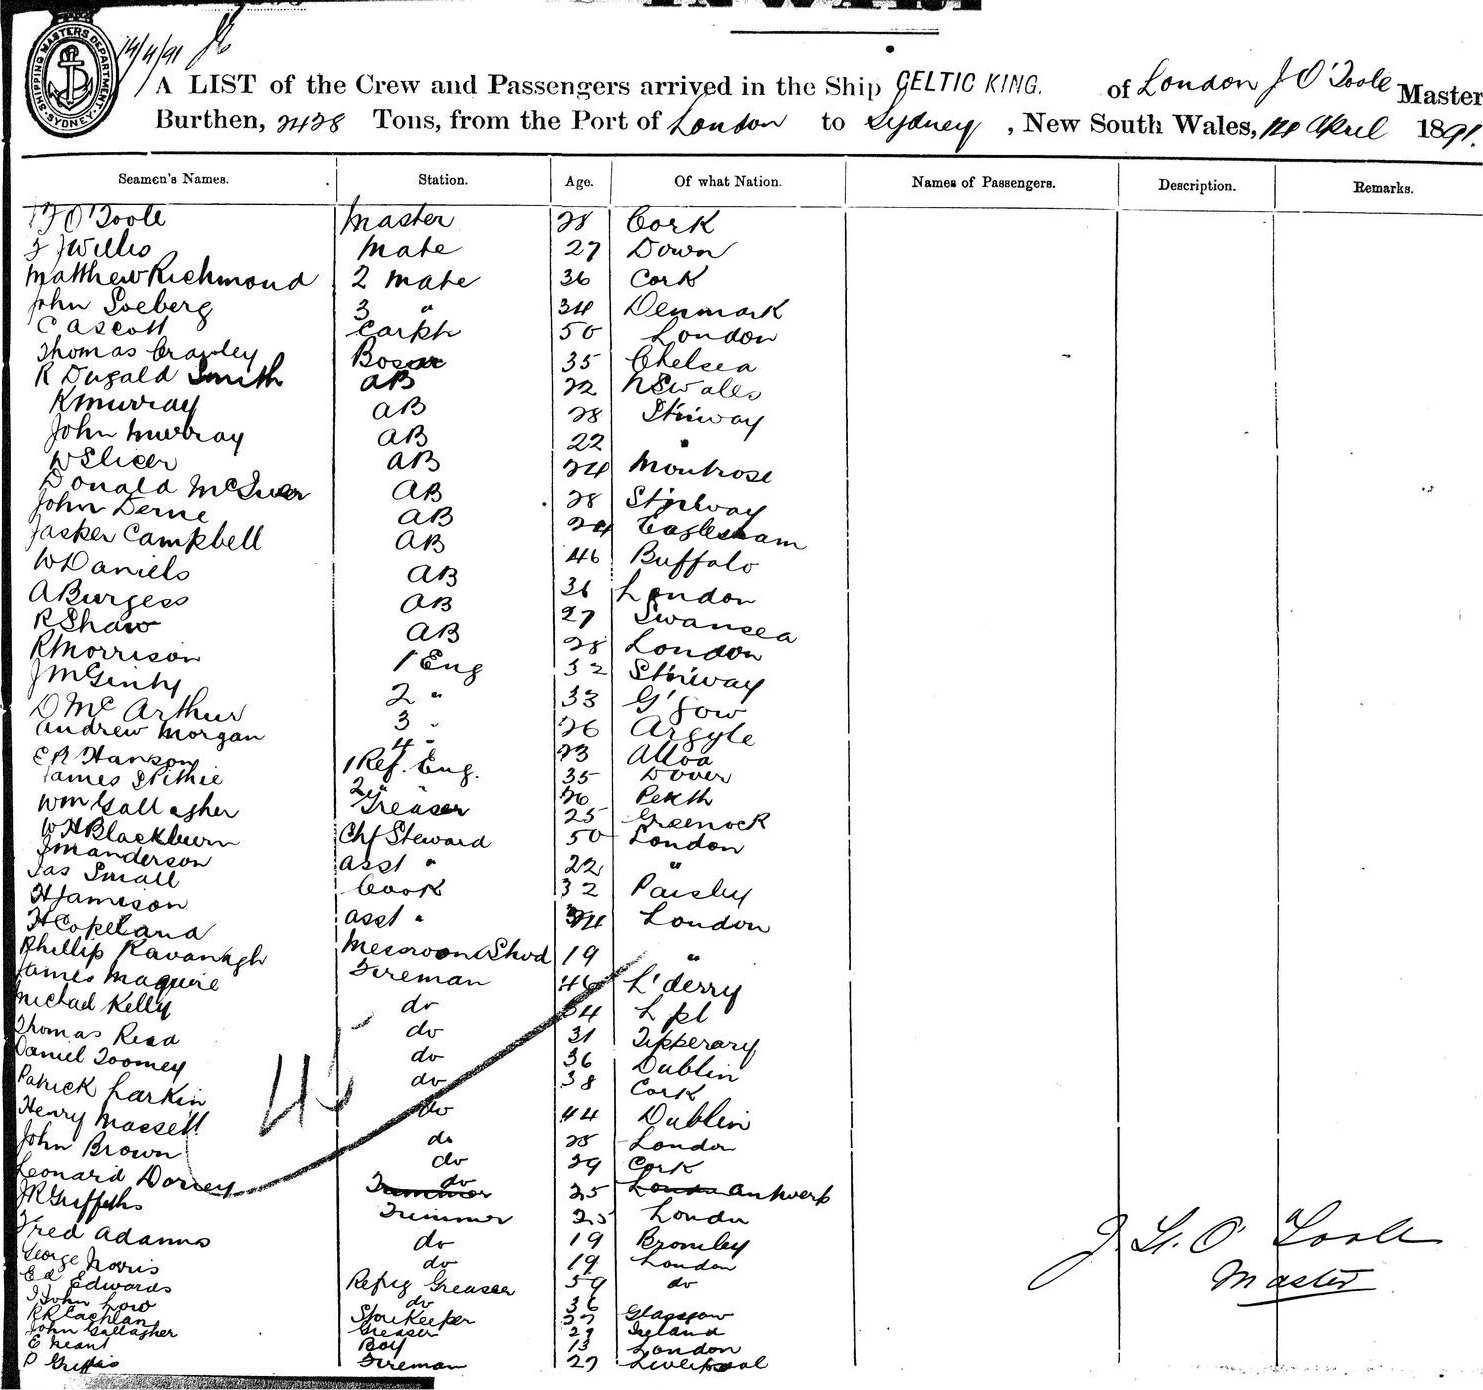 SHIPPING MASTERS DEPARTMENT SYDNEY
14/4/91
A LIST of the Crew and Passengers arrived in the Ship CELTIC KING. of London J O'Toole Master
Burthen, 2428 Tons, from the Port of London to Sydney, New South Wales, 14 April 1891.
Seamen's Names. Station. Age. Of what Nation. Names of Passengers. Description. Remarks.
O'Toole Master 28 Cork
J Willis Mate 27 Down
Matthew Richmond 2 Mate 36 Cork
John Soeberg 3 " 34 Denmark
C Ascott Carptr 50 London
Thomas Crawley Bosun 35 Chelsea
R Dugald Smith AB 22 NSWales
K Murray AB 28 St'nway
John Murray AB 22 "
W Slicer AB 24 Montrose
Donald McIver AB 28 St'nway
John Derne AB 24 Eaglesham
Jasper Campbell AB 46 Buffalo
W Daniels AB 36 London
A Burgess AB 27 Swansea
R Shaw AB 28 London
R Morrison 1 Eng 32 St'nway
J McGinty 2 " 33 G'gow
D McArthur 3 " 26 Argyle
Andrew Morgan 4 " 23 Alloa
E R Hanson 1 Ref. Eng. 35 Dover
James S Pithie 2 " " 26 Perth
Wm Gallagher Greaser 25 Greenock
W H Blackburn Chf Steward 50 London
J M Anderson Asst " 22 "
Jas Small Cook 32 Paisley
H Jamieson Asst " London
H Copeland Messroom Stwd 19 "
Phillip Kavanagh Fireman 46 L'derry
James Maguire do 34 L'pl
Michael Kelly do 31 Tipperary
Thomas Read do 36 Dublin
Daniel Toomey do 38 Cork
Patrick Larkin do 44 Dublin
Henry Massett do 25 London
John Brown do 29 Cork
Leonard Dorrey Trimmer do 25 London Antwerp
J R Griffiths Trimmer 25 London
Fred Adams do 19 Bromley
George Norris do 19 London
Ed Edwards Refrig Greaser 59 do
John Low do 36 Glasgow
R R Cachlan Storekeeper 27 Ireland
John Gallagher Greaser 29
E Keant Boy 13 London
P Griffis Fireman 27 Liverpool
45
J. O'Toole
Master